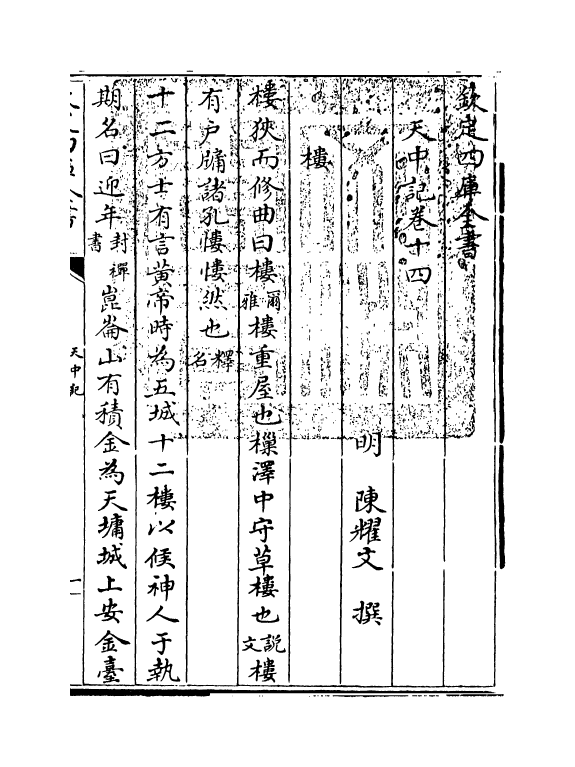 欽定四庫全書
天中記卷十四
明 陳耀文 撰
樓
樓狹而修曲曰樓爾雅樓重屋也樔澤中守草樓也說文樓
有戶牖諸孔慺慺然也釋名
十二方士有言黃帝時為五城十二樓以候神人于執
期名曰迎年封禪書崑崙山有積金為天墉城上安金臺
天中記